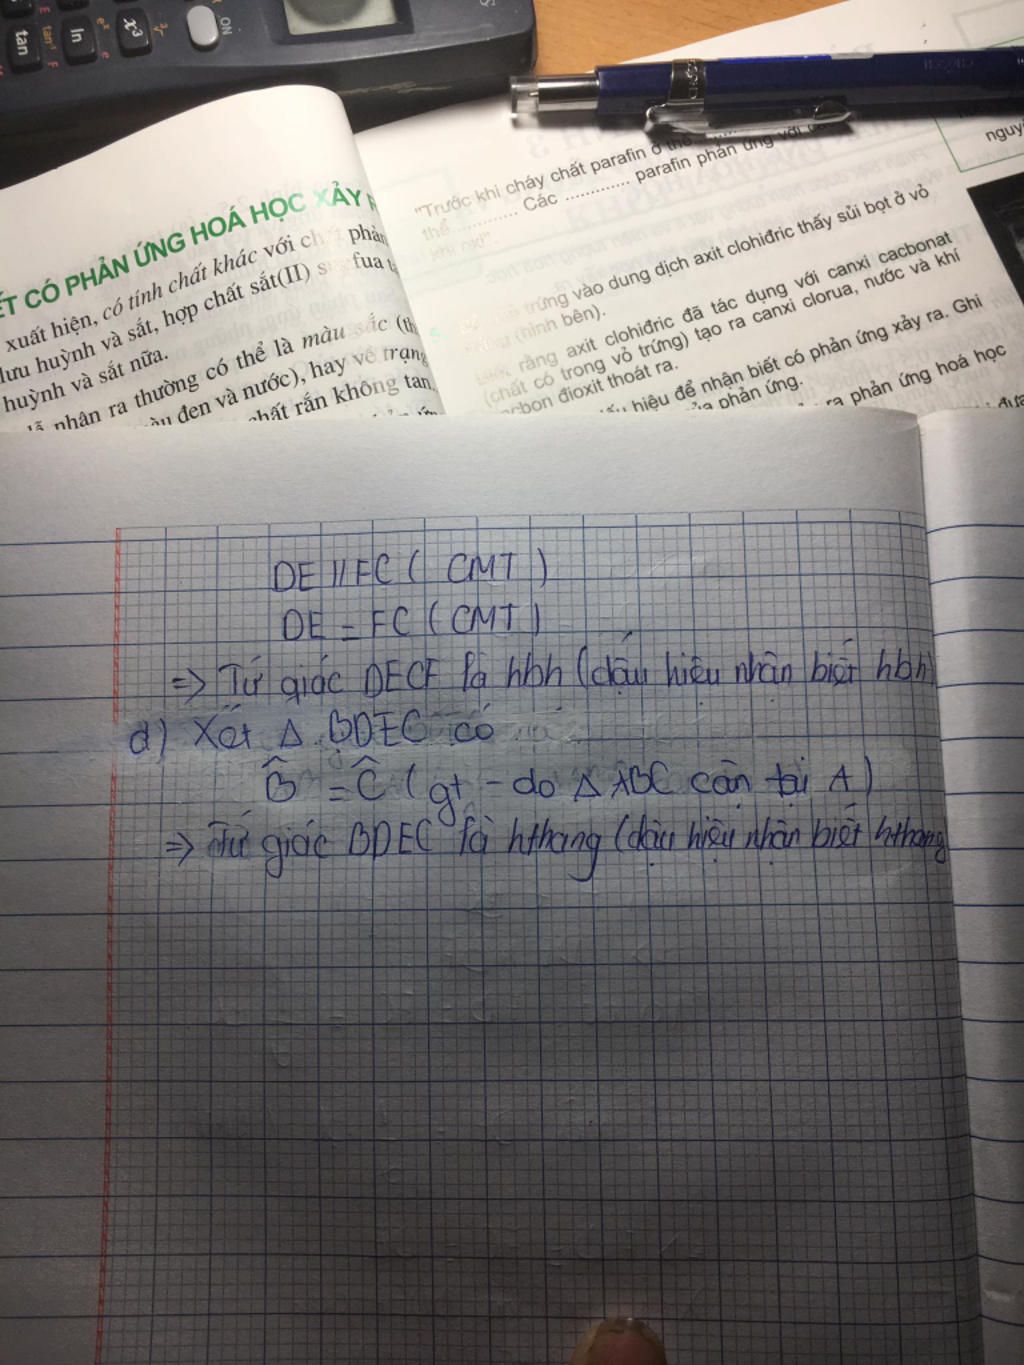 ON
tan
ln
x³
ẾT CÓ PHẢN ỨNG HOÁ HỌC XẢY
xuất hiện, có tính chất khác với phản
lưu huỳnh và sắt, hợp chất sắt(II)
huỳnh và sắt nữa.
nhận ra thường có thể là màu sắc
đen và nước), hay về trạng
chất rắn không tan,
"Trước khi cháy chất parafin ở thể
thể ............ Các ............ parafin phản ứng với
trứng vào dung dịch axit clohiđric thấy sủi bọt ở vỏ
(hình bên).
rằng axit clohiđric đã tác dụng với canxi cacbonat
(chất có trong vỏ trứng) tạo ra canxi clorua, nước và khí
cacbon đioxit thoát ra.
hiệu để nhận biết có phản ứng xảy ra. Ghi
của phản ứng.
ra phản ứng hoá học
DE // FC ( CMT )
DE = FC ( CMT )
=> Tứ giác DECF là hbh (dấu hiệu nhận biết hbh)
d) Xét Δ BDEC có
B̂ = Ĉ ( gt - do Δ ABC cân tại A )
=> Tứ giác BDEC là hthang (dấu hiệu nhận biết hthang